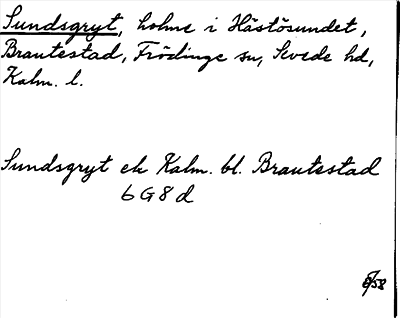 Sundsgryt, holme i Hästösundet,
Brautestad, Frödinge sn, Sevede hd,
Kalm. l.
Sundsgryt ek Kalm. bl. Brautestad
6G8d
/58